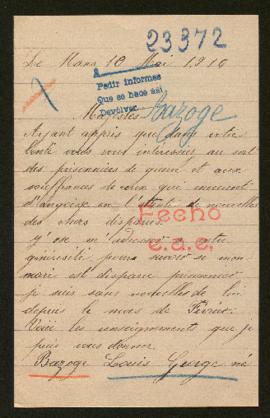 23372
Le Mans 10 Mai 1916
Pedir informes
Que se hace así
Devolver
Majestés
Bazoge
Ayant appris que dans votre
bonté vous vous intéressez au sort
des prisonniers de guerre et aux
souffrances de ceux qui meurent
d'angoisse en l'attente de nouvelles
des chers disparus.
Fecho
c.a.c.
J'ose m'adresser a votre
générosité pour savoir si mon
mari est disparu prisonnier
je suis sans nouvelles de lui
depuis le mois de Février.
Voici les renseignements que je
puis vous donner
Bazoge Louis George né